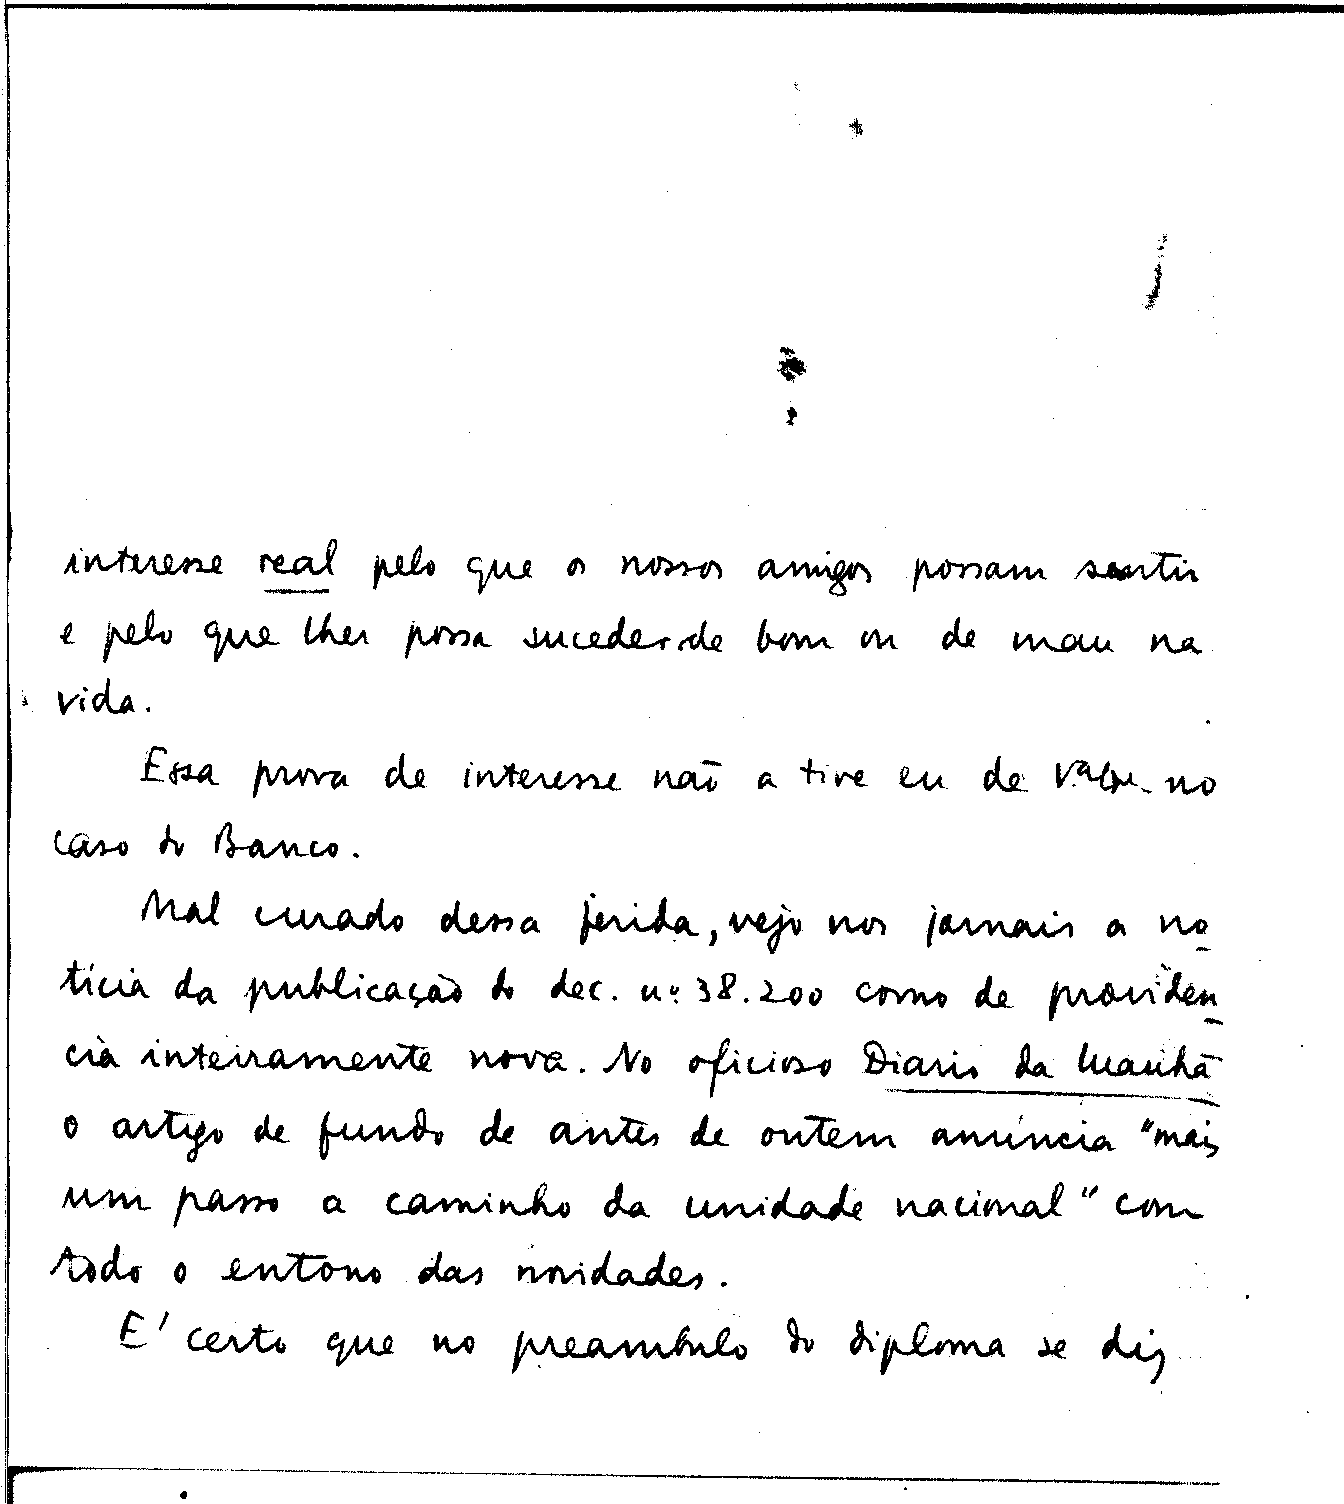 interesse real pelo que os nossos amigos possam sentir
e pelo que lhes possa suceder de bom ou de mau na
vida.
Essa prova de interesse não a tive eu de no
caso do Banco.
Mal curado dessa ferida, vejo nos jornais a no
tícia da publicação do dec. nº 38.200 como de providen
cia inteiramente nova. No oficioso Diario da Manhã
o artigo de fundo de antes de ontem anúncia "mais
um passo a caminho da unidade nacional" com
todo o entono das novidades.
E' certo que no preambulo do diploma se diz